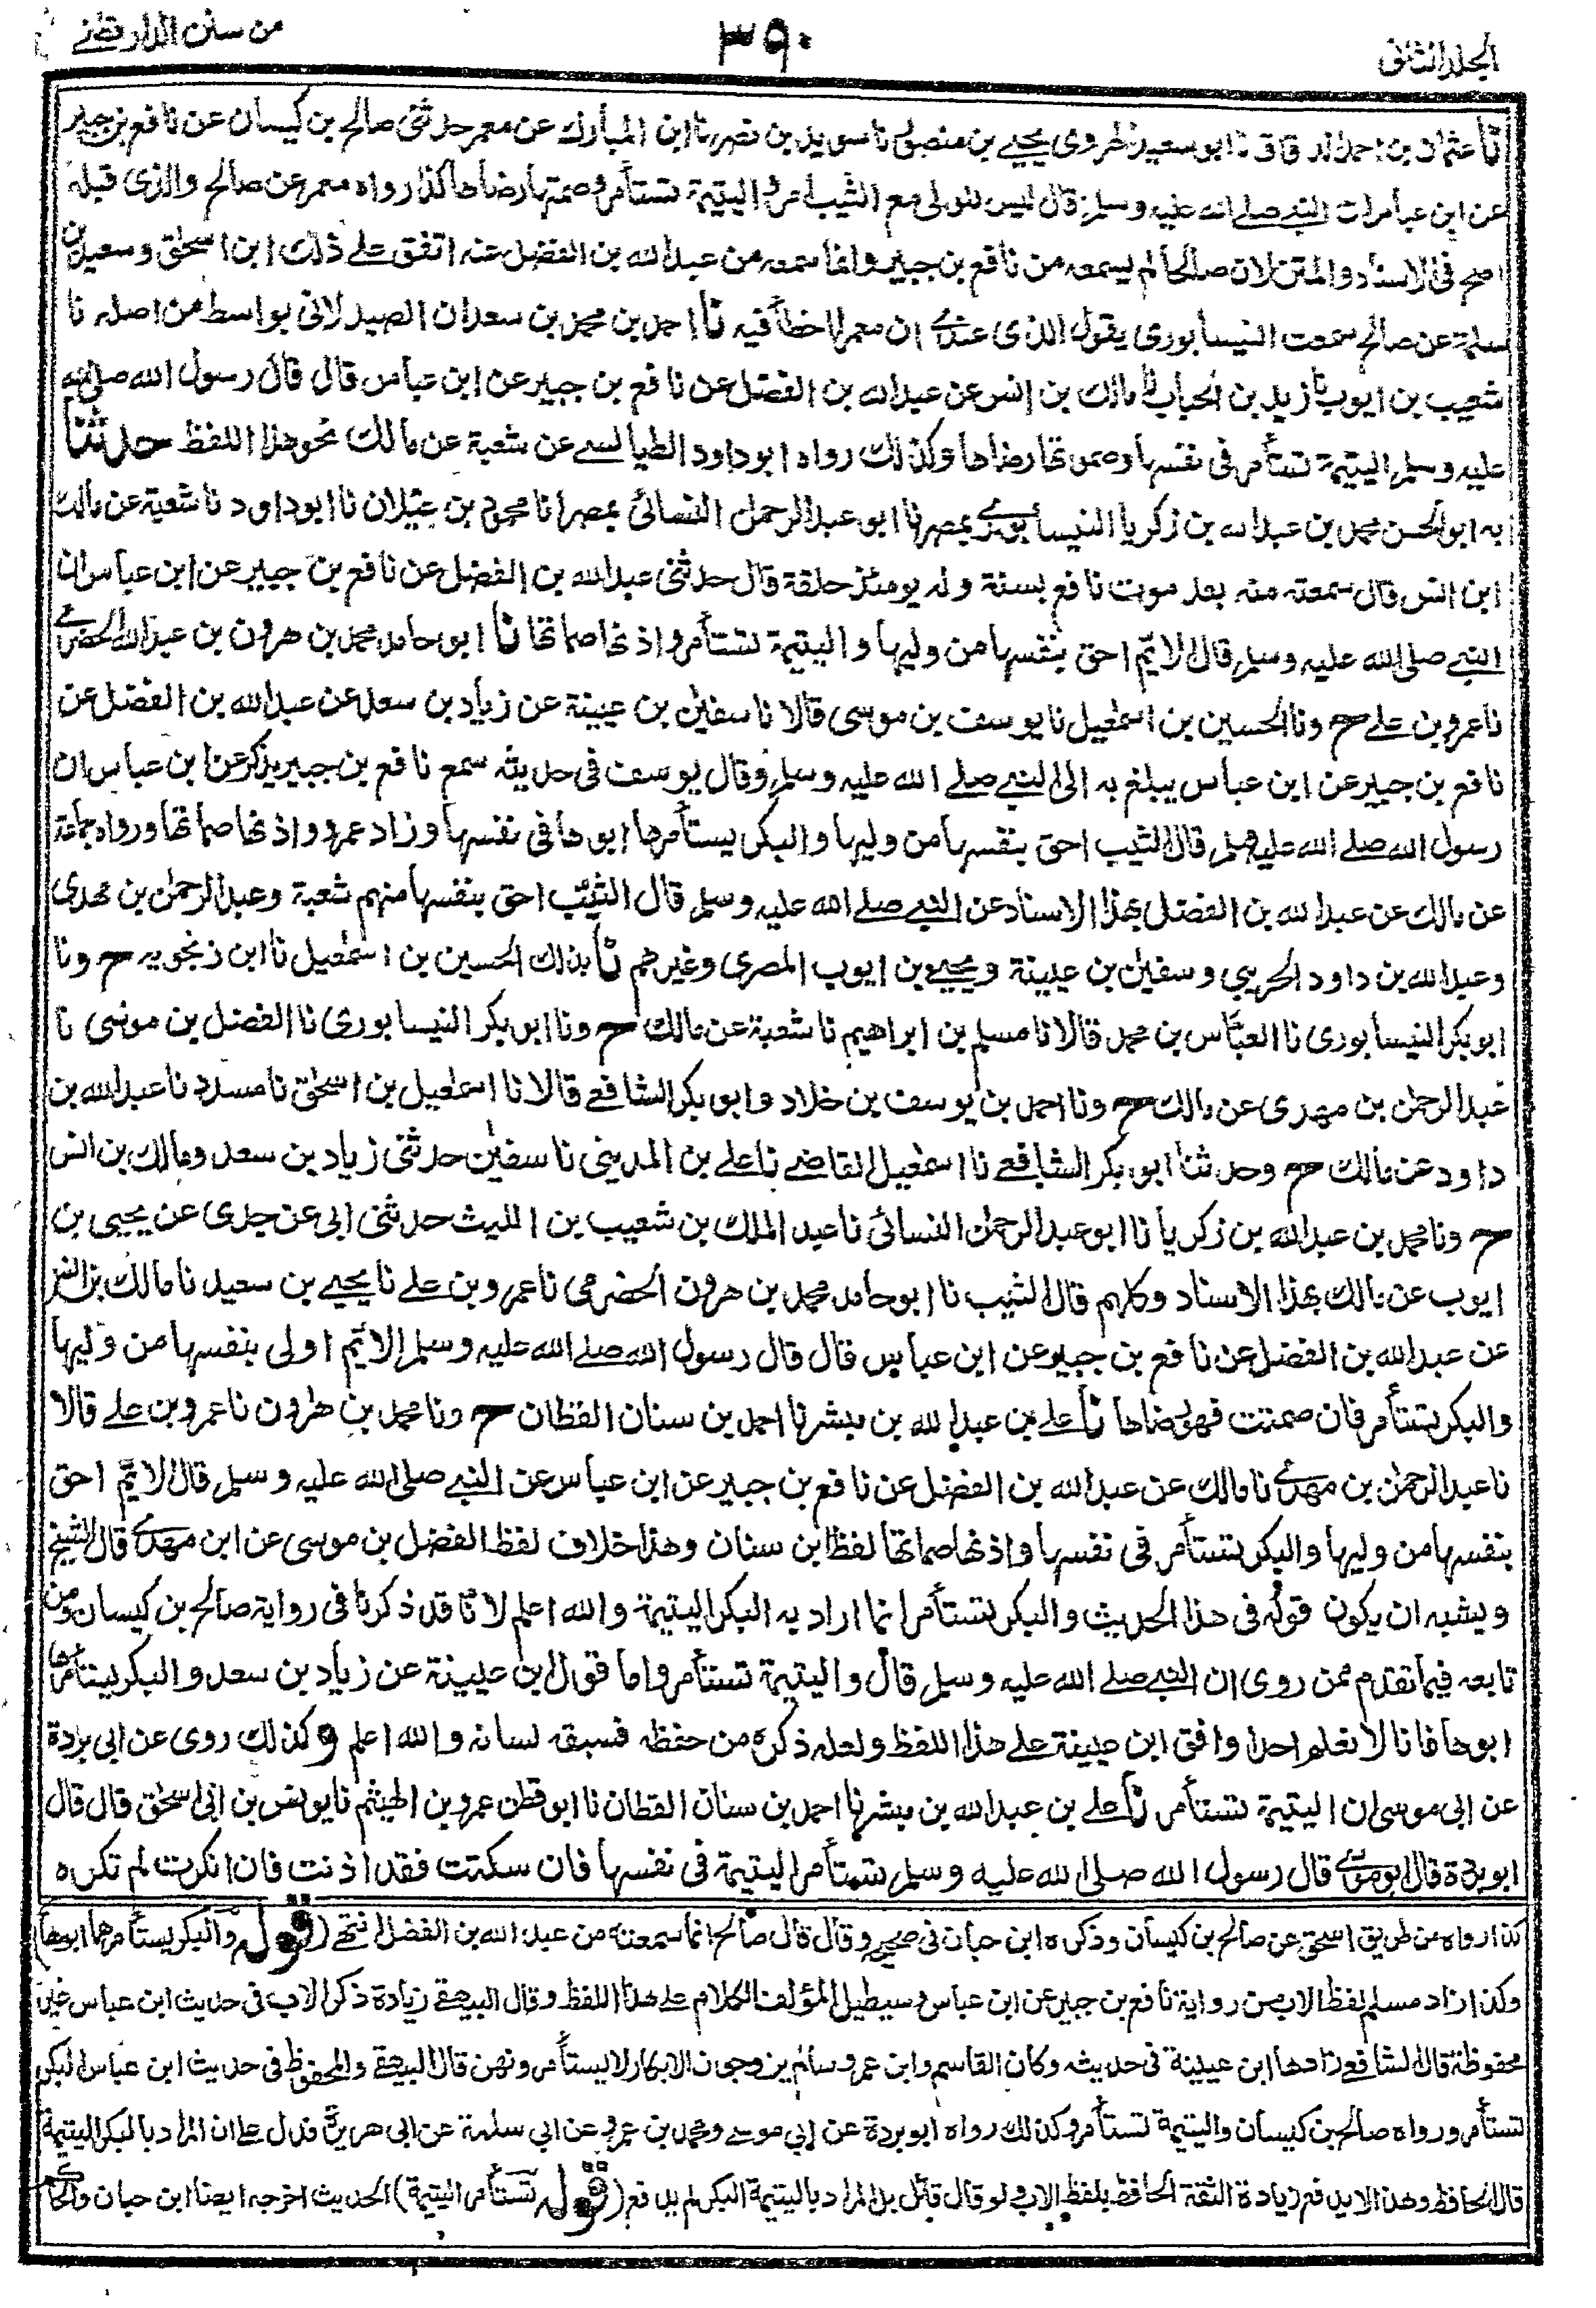 الجلد الثانى
٣٩٠
من سنن الدارقطنے
نا عثمان بن احمد الدقاق نا ابو سعيد الهروى يحيے بن منصور نا سويد بن نصر نا ابن المبارك عن معمر حدثنى صالح بن كيسان عن نافع بن جبير
عن ابن عباس ان النبے صلے الله عليه وسلم قال ليس للولى مع الثيب امر و اليتيمة تستأمر وصمتها رضاها كذا رواه معمر عن صالح والذى قبله
اصح فى الاسناد والمتن لان صالحا لم يسمعه من نافع بن جبير وانما سمعه من عبد الله بن الفضل عنه اتفق علے ذلك ابن اسحٰق وسعيد بن
سلمة عن صالح سمعت النيسابورى يقول الذى عندے ان معمرا اخطأ فيه نا احمد بن محمد بن سعدان الصيدلانى بواسط من اصله نا
شعيب بن ايوب نا زيد بن الحباب نا مالك بن انس عن عبد الله بن الفضل عن نافع بن جبير عن ابن عباس قال قال رسول الله صلے الله
عليه وسلم اليتيمة تستأمر فى نفسها وصموتها رضاها وكذلك رواه ابو داود الطيالسے عن شعبة عن مالك نحو هذا اللفظ حدثنا
به ابو الحسن محمد بن عبد الله بن زكريا النيسابورے بمصر نا ابو عبد الرحمٰن النسائى بمصر انا محمود بن غيلان نا ابو داود نا شعبة عن مالك
ابن انس قال سمعته منه بعد موت نافع بسنة وله يومئذ حلقة قال حدثنى عبد الله بن الفضل عن نافع بن جبير عن ابن عباس ان
النبے صلى الله عليه وسلم قال الايّم احق بنفسها من وليها واليتيمة تستأمر واذنها صماتها نا ابو حامد محمد بن هرون بن عبد الله الحضرمے
نا عمرو بن علے ح ونا الحسين بن اسمٰعيل نا يوسف بن موسى قالا نا سفيٰن بن عيينة عن زياد بن سعد عن عبد الله بن الفضل عن
نافع بن جبير عن ابن عباس يبلغ به الى النبے صلے الله عليه وسلم وقال يوسف فى حديثه سمع نافع بن جبير يذكر عن ابن عباس ان
رسول الله صلے الله عليه وسلم قال الثيب احق بنفسها من وليها والبكر يستأمرها ابوها فى نفسها وزاد عمرو واذنها صماتها ورواه جماعة
عن مالك عن عبد الله بن الفضل بهذا الاسناد عن النبے صلے الله عليه وسلم قال الثيّب احق بنفسها منهم شعبة وعبد الرحمٰن بن مهدى
وعبد الله بن داود الخريبي وسفيٰن بن عيينة ويحيے بن ايوب المصرى وغيرهم نا بذلك الحسين بن اسمٰعيل نا ابن زنجويه ح ونا
ابو بكر النيسابورى نا العبّاس بن محمد قالا نا مسلم بن ابراهيم نا شعبة عن مالك ح ونا ابو بكر النيسابورى نا الفضل بن موسٰى نا
عبد الرحمٰن بن مهدى عن مالك ح ونا احمد بن يوسف بن خلاد وابو بكر الشافعے قالا نا اسمٰعيل بن اسحٰق نا مسدد نا عبد الله بن
داود عن مالك ح وحدثنا ابو بكر الشافعے نا اسمٰعيل القاضے نا علے بن المدينى نا سفيٰن حدثنى زياد بن سعد ومالك بن انس
ح ونا محمد بن عبد الله بن زكريا نا ابو عبد الرحمٰن النسائى نا عبد الملك بن شعيب بن الليث حدثنى ابى عن جدى عن يحيى بن
ايوب عن مالك بهذا الاسناد وكلهم قال الثيب نا ابو حامد محمد بن هرون الحضرمى نا عمرو بن علے نا يحيے بن سعيد نا مالك بن انس
عن عبد الله بن الفضل عن نافع بن جبير عن ابن عباس قال قال رسول الله صلے الله عليه وسلم الايّم اولى بنفسها من وليها
والبكر تستأمر فان صمتت فهو رضاها نا علے بن عبد الله بن مبشر نا احمد بن سنان القطان ح ونا محمد بن هٰرون نا عمرو بن علے قالا
نا عبد الرحمٰن بن مهدے نا مالك عن عبد الله بن الفضل عن نافع بن جبير عن ابن عباس عن النبے صلى الله عليه وسلم قال الايّم احق
بنفسها من وليها والبكر تستأمر فى نفسها واذنها صماتها لفظ ابن سنان وهذا خلاف لفظ الفضل بن موسى عن ابن مهدے قال الشيخ
ويشبه ان يكون قوله فى هذا الحديث والبكر تستأمر انما اراد به البكر اليتيمة والله اعلم لانّا قد ذكرنا فى رواية صالح بن كيسان ومن
تابعه فيما تقدم ممن روى ان النبے صلے الله عليه وسلم قال واليتيمة تستأمر واما قول ابن عيينة عن زياد بن سعد والبكر يستأمرها
ابوها فانا لا نعلم احدا وافق ابن عيينة علے هذا اللفظ ولعله ذكره من حفظه فسبقه لسانه والله اعلم وكذلك روى عن ابى بردة
عن ابى موسى ان اليتيمة تستأمر نا علے بن عبد الله بن مبشر نا احمد بن سنان القطان نا ابو قطن عمرو بن الهيثم نا يونس بن ابى اسحٰق قال قال
ابو بردة قال ابو موسے قال رسول الله صلى الله عليه وسلم تستأمر اليتيمة فى نفسها فان سكتت فقد اذنت فان انكرت لم تكره
كذا رواه من طريق اسحق عن صالح بن كيسان وذكره ابن حبان فى صحيحه وقال قال صالح انما سمعته من عبد الله بن الفضل انتهے (قوله والبكر يستأمرها ابوها)
وكذا زاد مسلم لفظ الاب من رواية نافع بن جبير عن ابن عباس وسيطيل المؤلف الكلام علے هذا اللفظ وقال البيهقے زيادة ذكر الاب فى حديث ابن عباس غير
محفوظة قال الشافعے زادها ابن عيينة فى حديثه وكان القاسم وابن عمر وسالم يزوجون الابكار لا يستأمرونهن قال البيهقے والمحفوظ فى حديث ابن عباس البكر
تستأمر ورواه صالح بن كيسان واليتيمة تستأمر وكذلك رواه ابو بردة عن ابي موسے ومحمد بن عمرو عن ابي سلمة عن ابى هريرة فدل علے ان المراد بالبكر اليتيمة
قال الحافظ وهذا لا يدفع زيادة الثقة الحافظ بلفظ الاب ولو قال قائل بل المراد باليتيمة البكر لم يدفع (قوله تستأمر اليتيمة) الحديث اخرجه ايضا ابن حبان والحاكم